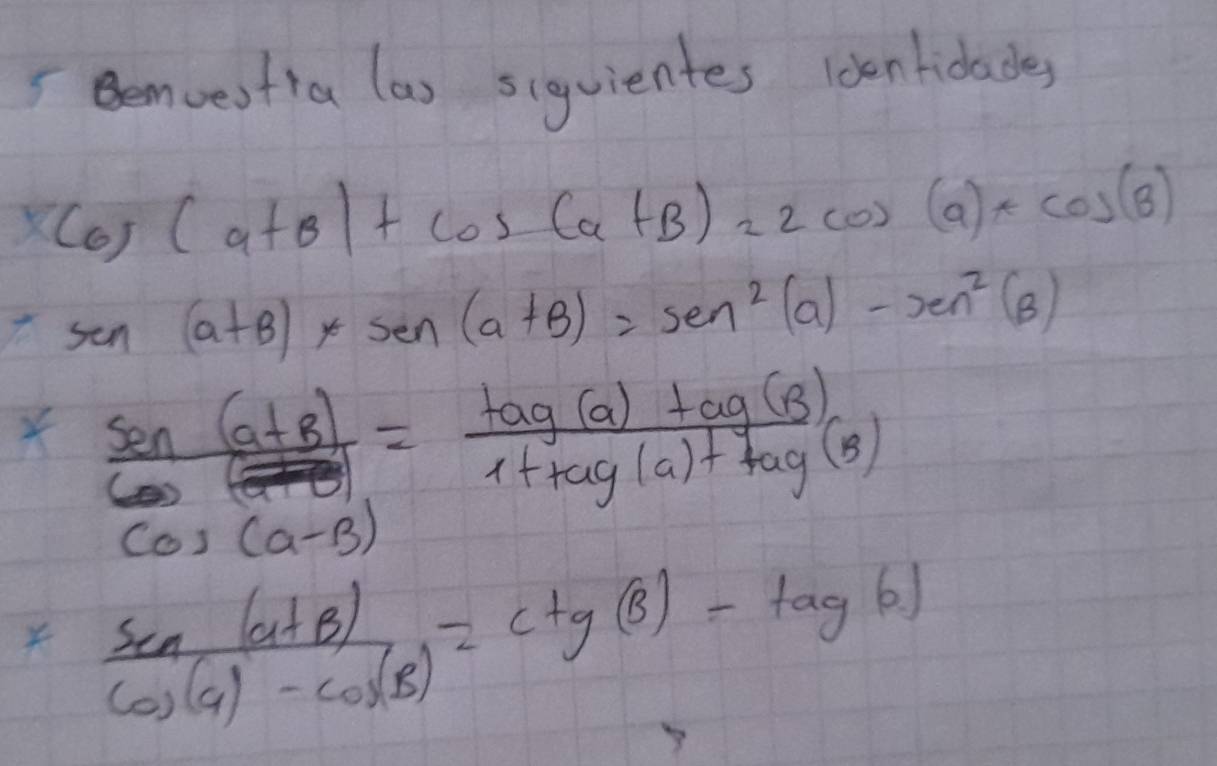 Demuestra las siguientes identidades
* Cos (a+B) + cos (a+B) = 2 cos (a) * cos(B)
* sen (a+B) * sen (a+B) = sen² (a) - sen² (B)
* sen (a+B) / cos (a-B) = tag (a) tag (B) / 1+tag (a) + tag (B)
* sen (a+B) / cos(a) - cos(B) = ctg (B) - tag b)